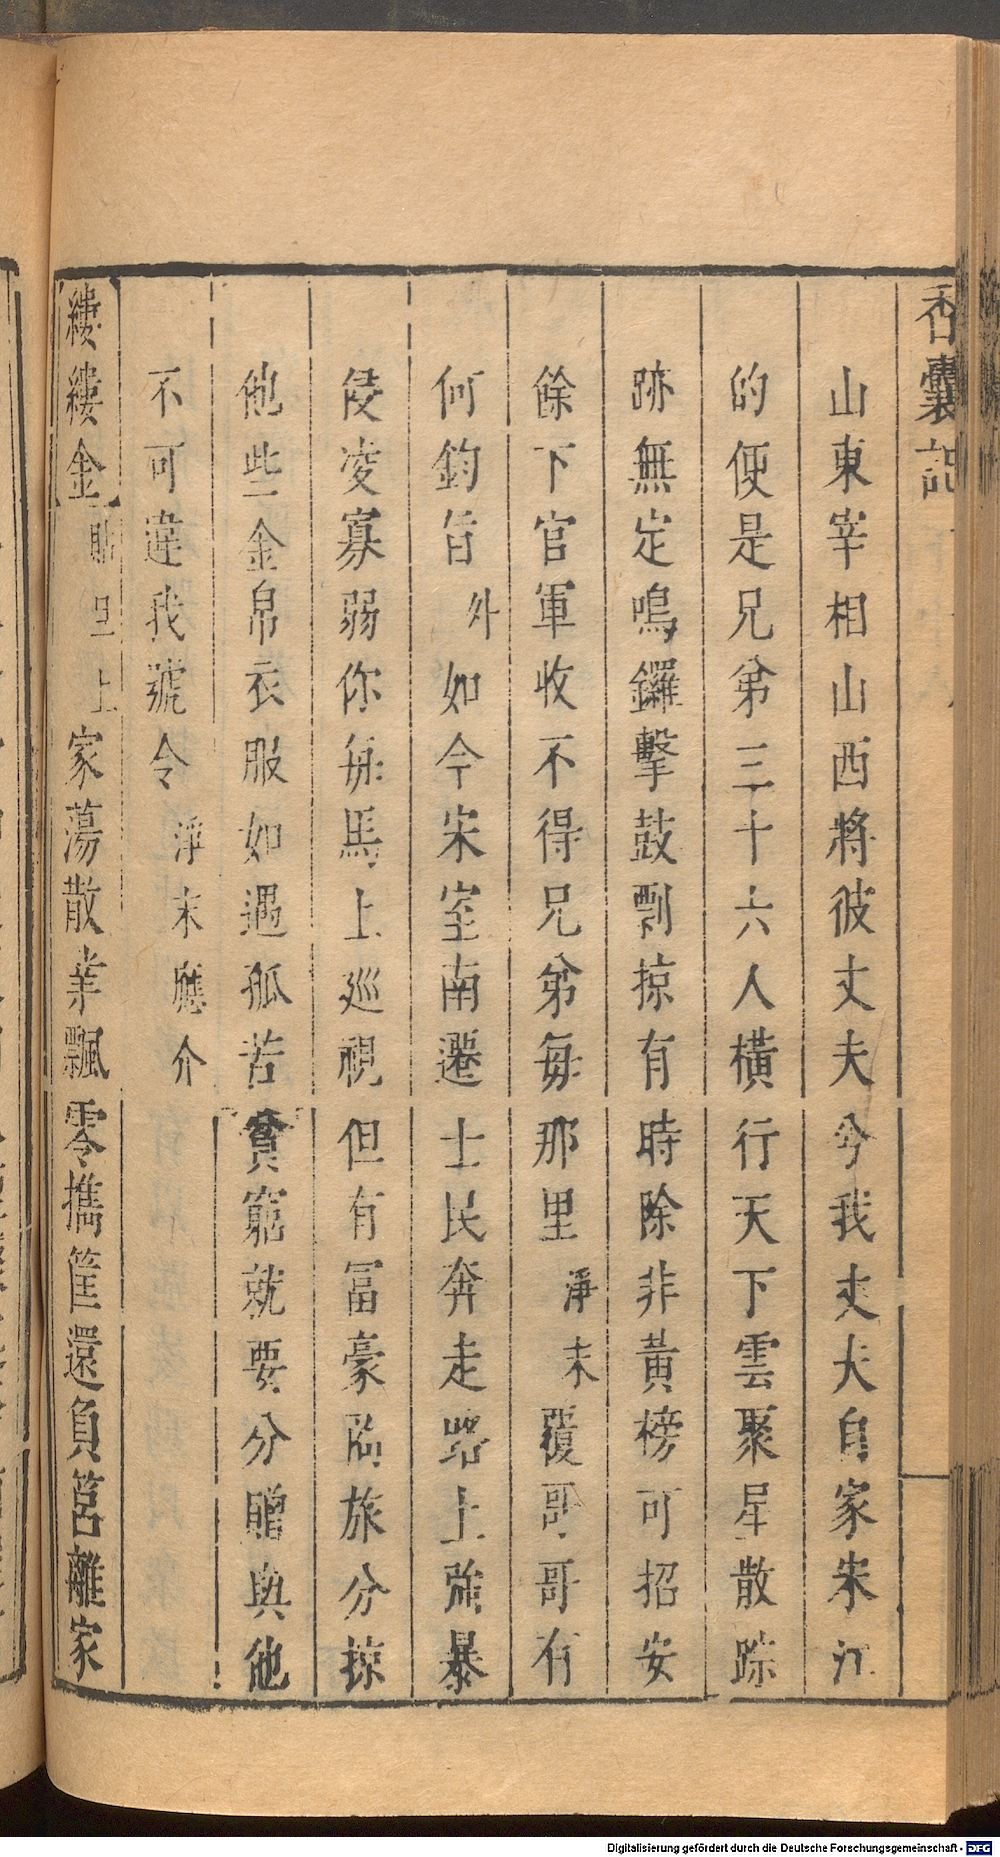 香囊記
山東宰相山西將彼丈夫兮我丈夫自家宋江
的便是兄弟三十六人橫行天下雲聚星散踪
跡無定鳴鑼擊鼓剽掠有時除非黃榜可招安
餘下官軍收不得兄弟每那里淨末覆哥哥有
何鈞旨外如今宋室南遷士民奔走路上強暴
侵凌寡弱你每馬上巡視但有富豪商旅分掠
他些金帛衣服如遇孤苦貧窮就要分贈與他
不可違我號令淨末應介
縷縷金貼旦上家蕩散業飄零攜筐還負筥離家
Digitalisierung gefördert durch die Deutsche Forschungsgemeinschaft - DFG